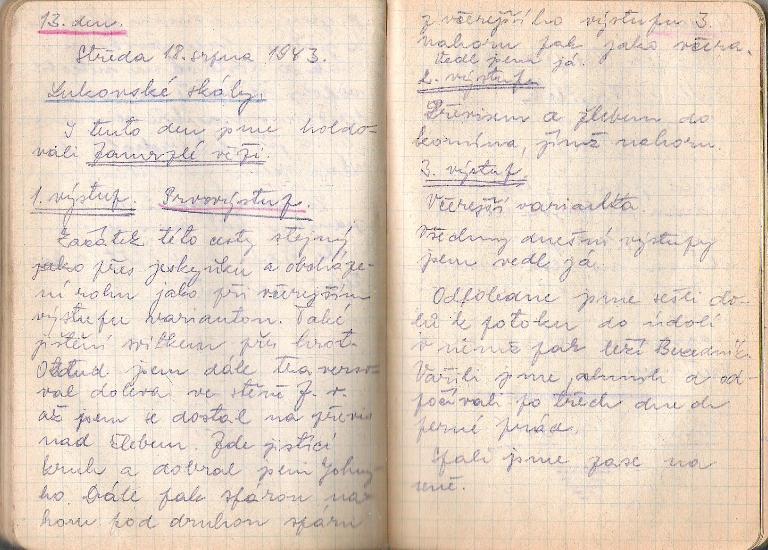 13. den.
Středa 18. srpna 1943.
Sukovské skály.
I tento den jsme holdo-
vali Zamrzlé věži.
1. výstup. Prvovýstup.
Začátek této cesty stejný
jako přes jeskyňku a obcháze-
ní rohu jako při včerejším
výstupu variantou. Také
jistění svitkem přes hrot.
Odtud jsem dále traverso-
val doleva ve stěně J. v.
až jsem se dostal na převis
nad žlebem. Zde jistící
kruh a dobral jsem Johny-
ho. Dále pak spárou na-
horu pod druhou spáru
z včerejšího výstupu 3.
nahoru pak jako včera.
vedl jsem já.
2. výstup.
Převisem a žlebem do
komína, jímž nahoru.
3. výstup.
Včerejší varianta.
Všechny dnešní výstupy
jsem vedl já.
Odpoledne jsme sešli do-
lů k potoku do údolí
v němž pak leží Bezedník.
Vařili jsme, a od-
počívali po třech dnech
perné práce.
Spali jsme zase na
seně.